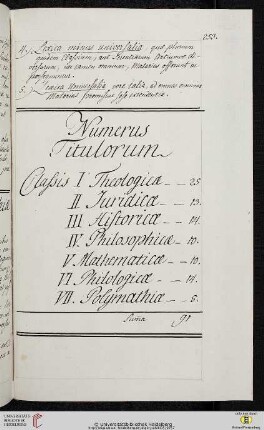 253.
4. Lexica minus universalia, quæ plurium
quidem Classium, aut Scientiarum Doctrinas di-
versarum, non tamen omnium, Materias offerunt
5. Lexica Universalia, vere talia, ad omnes omnino
Materias promissius sese extendentia.
Numerus
Titulorum
Classis I Theologicæ - - 25
II. Juridicæ - - 13.
III. Historicæ - - 14.
IV. Philosophicæ - - 10.
V. Mathematicæ - - 10.
VI. Philologicæ - - 14.
VII. Polymathiæ - - 5.
Suma 91
UNIVERSITÄTS-
BIBLIOTHEK
HEIDELBERG
Universitätsbibliothek Heidelberg